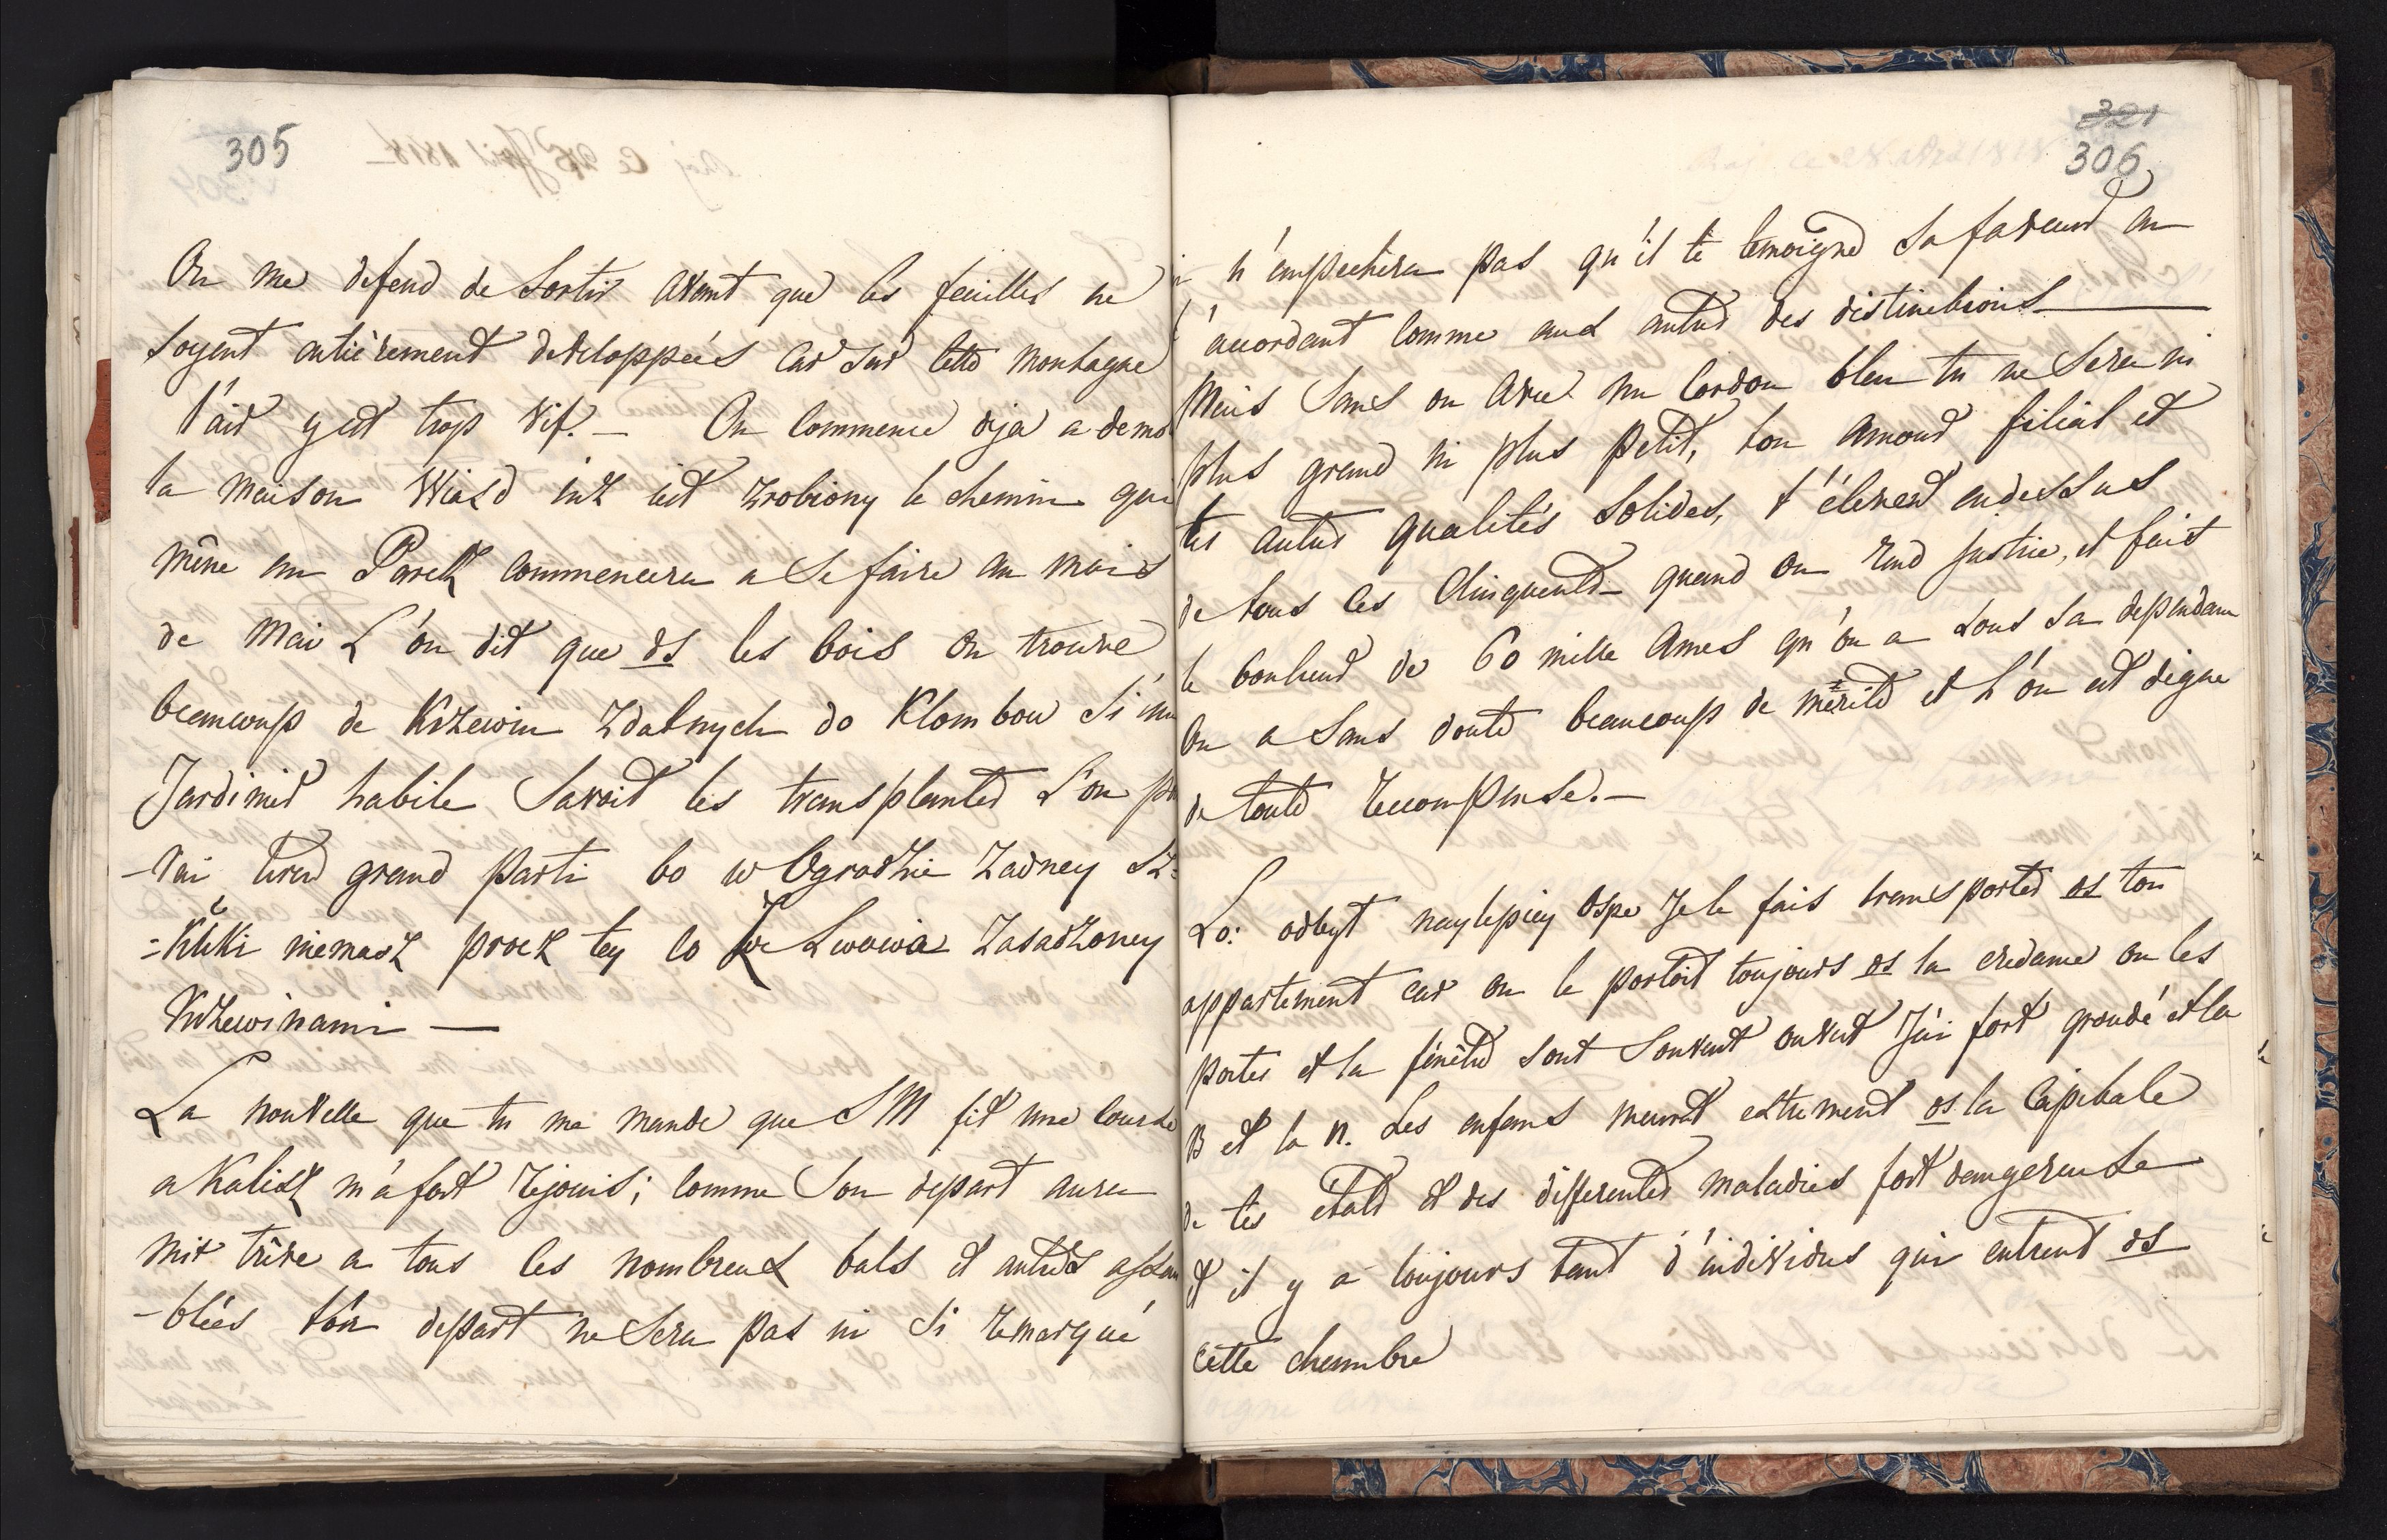 305
On me defend de Sortir avant que les feuilles ne
soyent entièrement developpées car sur cette montagne
l'air y est trop vif. — On commence deja a demo
la maison Wiazd inż iest zrobiony le chemin qui
mêne au Parck commencera a se faire au mois
de Mai L'on dit que ds les bois on trouve
beaucoup de Krzewin zdatnych do Klombow si un
Jardinier habile Savoit les transplanter L'on po
-roi tirer grand parti bo w Ogrodzie zadney sz=
=tuki niemasz procz tey co ze Lwowa zasadzoney
Krzewinami —
La nouvelle que tu me mande que SM fit une course
a Kalisz m'a fort rejouis; comme Son depart aura
mit trêve a tous les nombreux bals et autres assam
-blées ton depart ne sera pas ni si remarqué
321
306
n'empechera pas qu'il te temoigne sa faveur en
t'accordant comme aux autres des distinctions —
Mais sans ou avec un Cordon bleu tu ne sera ni
plus grand ni plus petit, ton amour filial et
tes autres qualités Solides, t'élevent audessus
de tous ces Clinquents quand on rend justice, et fait
le bonheur de 60 mille ames qu'on a sous sa dependance
on a sans doute beaucoup de mérite et l'on est digne
de toute recompense. —
Lo: odbyt naylepiey ospe Je le fais transporter ds ton
appartement car on le portoit toujours ds la credance ou les
portes et la fenêtre sont souvent ouvert J'ai fort grondé et la
B et la N. Les enfans meuret extrement ds la Capitale
de tes etats et des differentes maladies fort dangereuse
et il y a toujours tant d'individus qui entrent ds
cette chembre